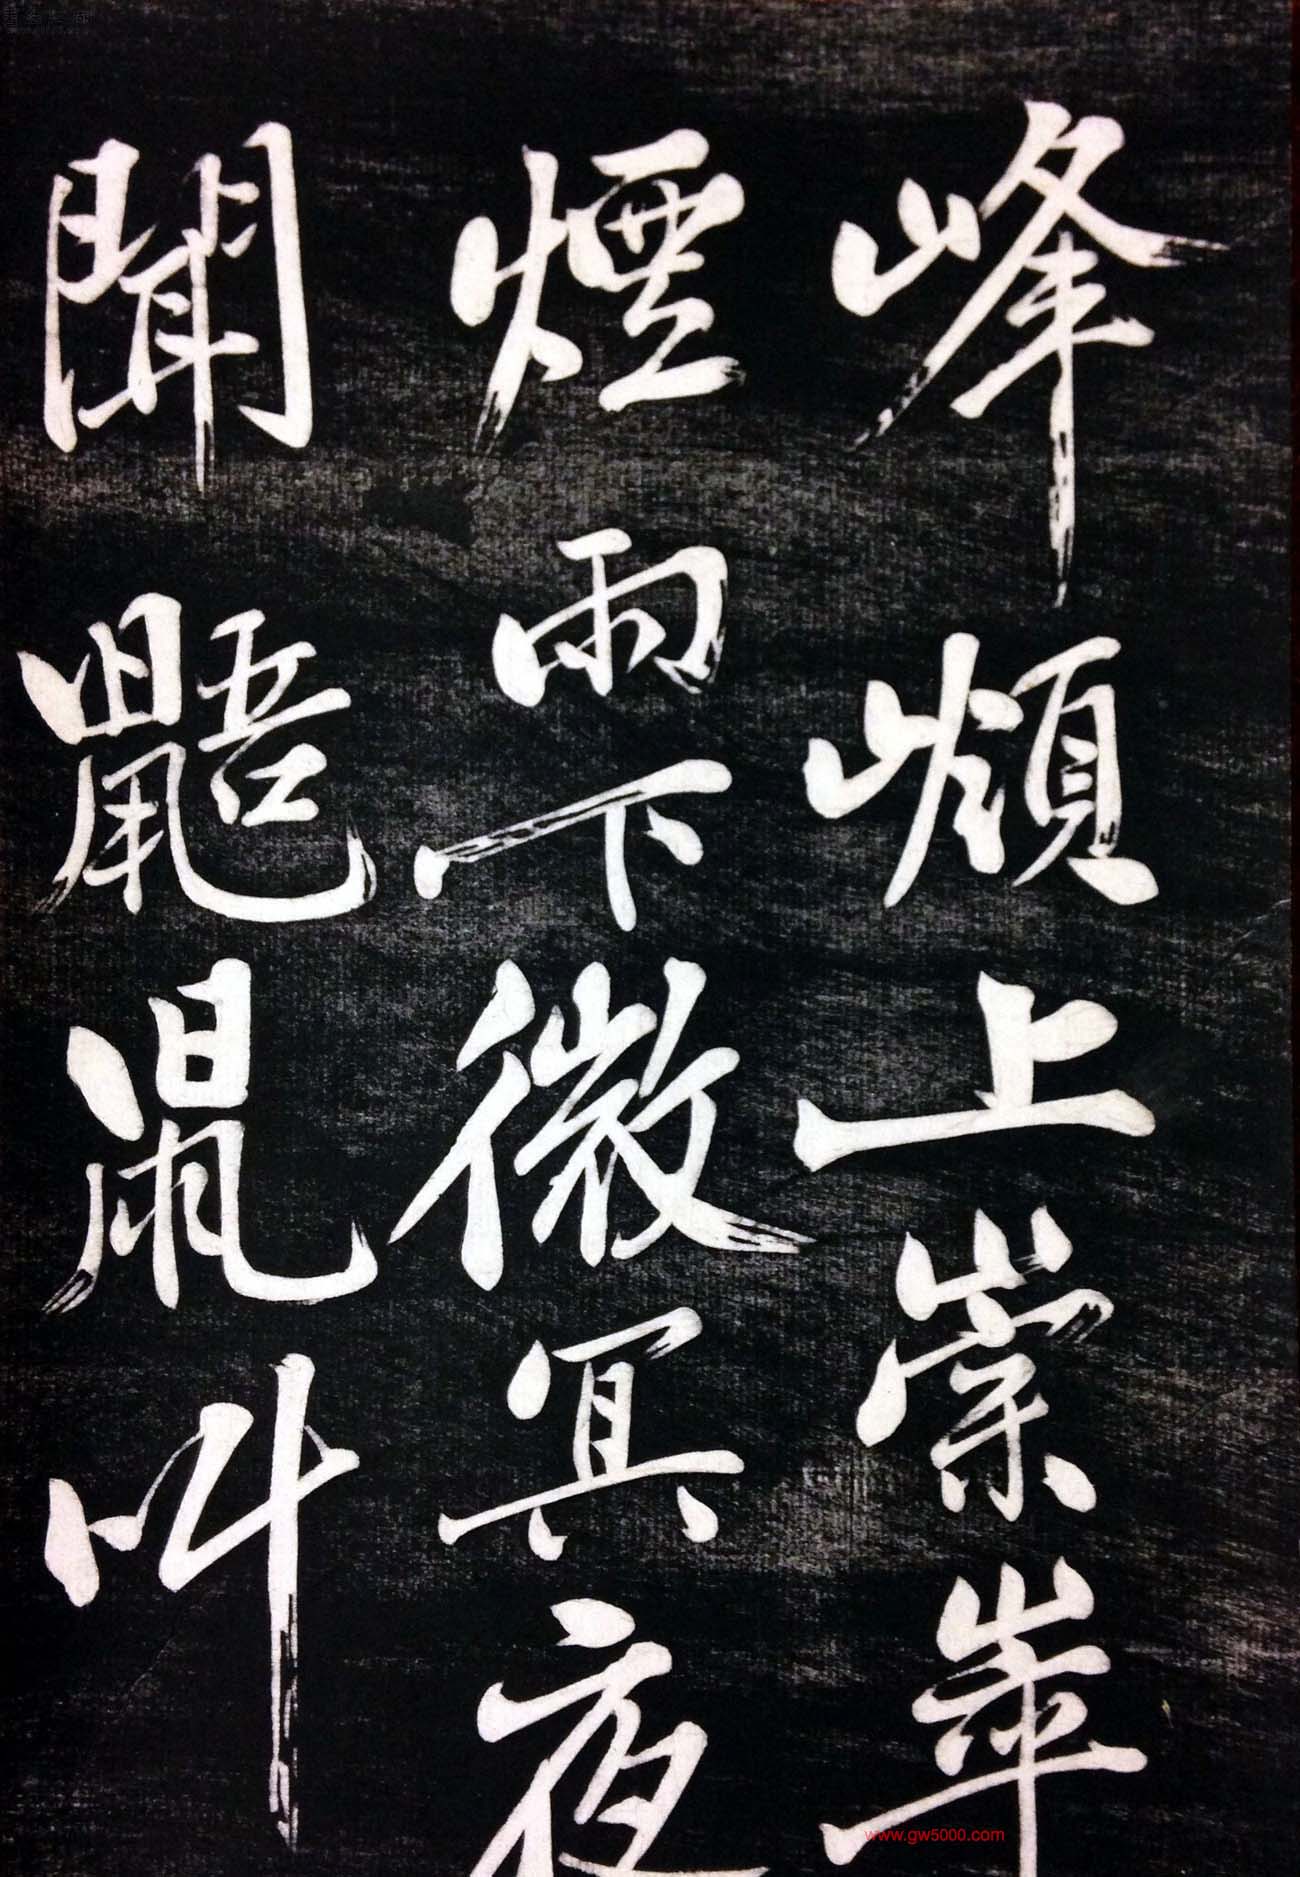 峰嶺上崇崒
煙雨下微冥夜
聞鼯鼠叫
www.gw5000.com